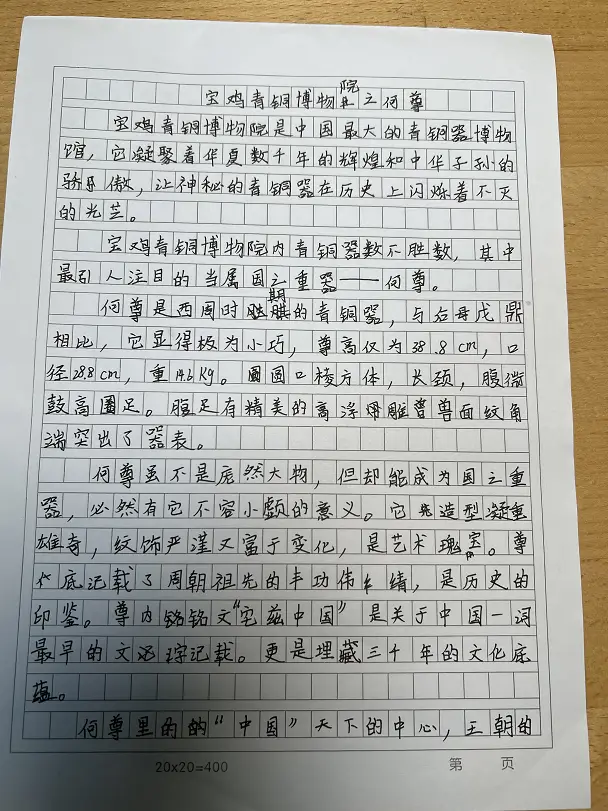 宝鸡青铜博物院之何尊
宝鸡青铜博物院是中国最大的青铜器博物
馆，它凝聚着华夏数千年的辉煌和中华子孙的
骄傲，让神秘的青铜器在历史上闪烁着不灭
的光芒。
宝鸡青铜博物院内青铜器数不胜数，其中
最引人注目的当属国之重器——何尊。
何尊是西周时期的青铜器，与后母戊鼎
相比，它显得极为小巧，尊高仅为38.8cm，口
径28.8cm，重14.6kg。圆口棱方体，长颈，腹微
鼓高圈足。腹足有精美的高浮雕兽面纹角
端突出了器表。
何尊虽不是庞然大物，但却能成为国之重
器，必然有它不容小觑的意义。它造型凝重
雄奇，纹饰严谨又富于变化，是艺术瑰宝。尊
底记载了周朝祖先的丰功伟绩，是历史的
印鉴。尊内铭文“宅兹中国”是关于中国一词
最早的文字记载。更是埋藏三千年的文化底
蕴。
何尊里的“中国”天下的中心，王朝的
20x20=400
第 页